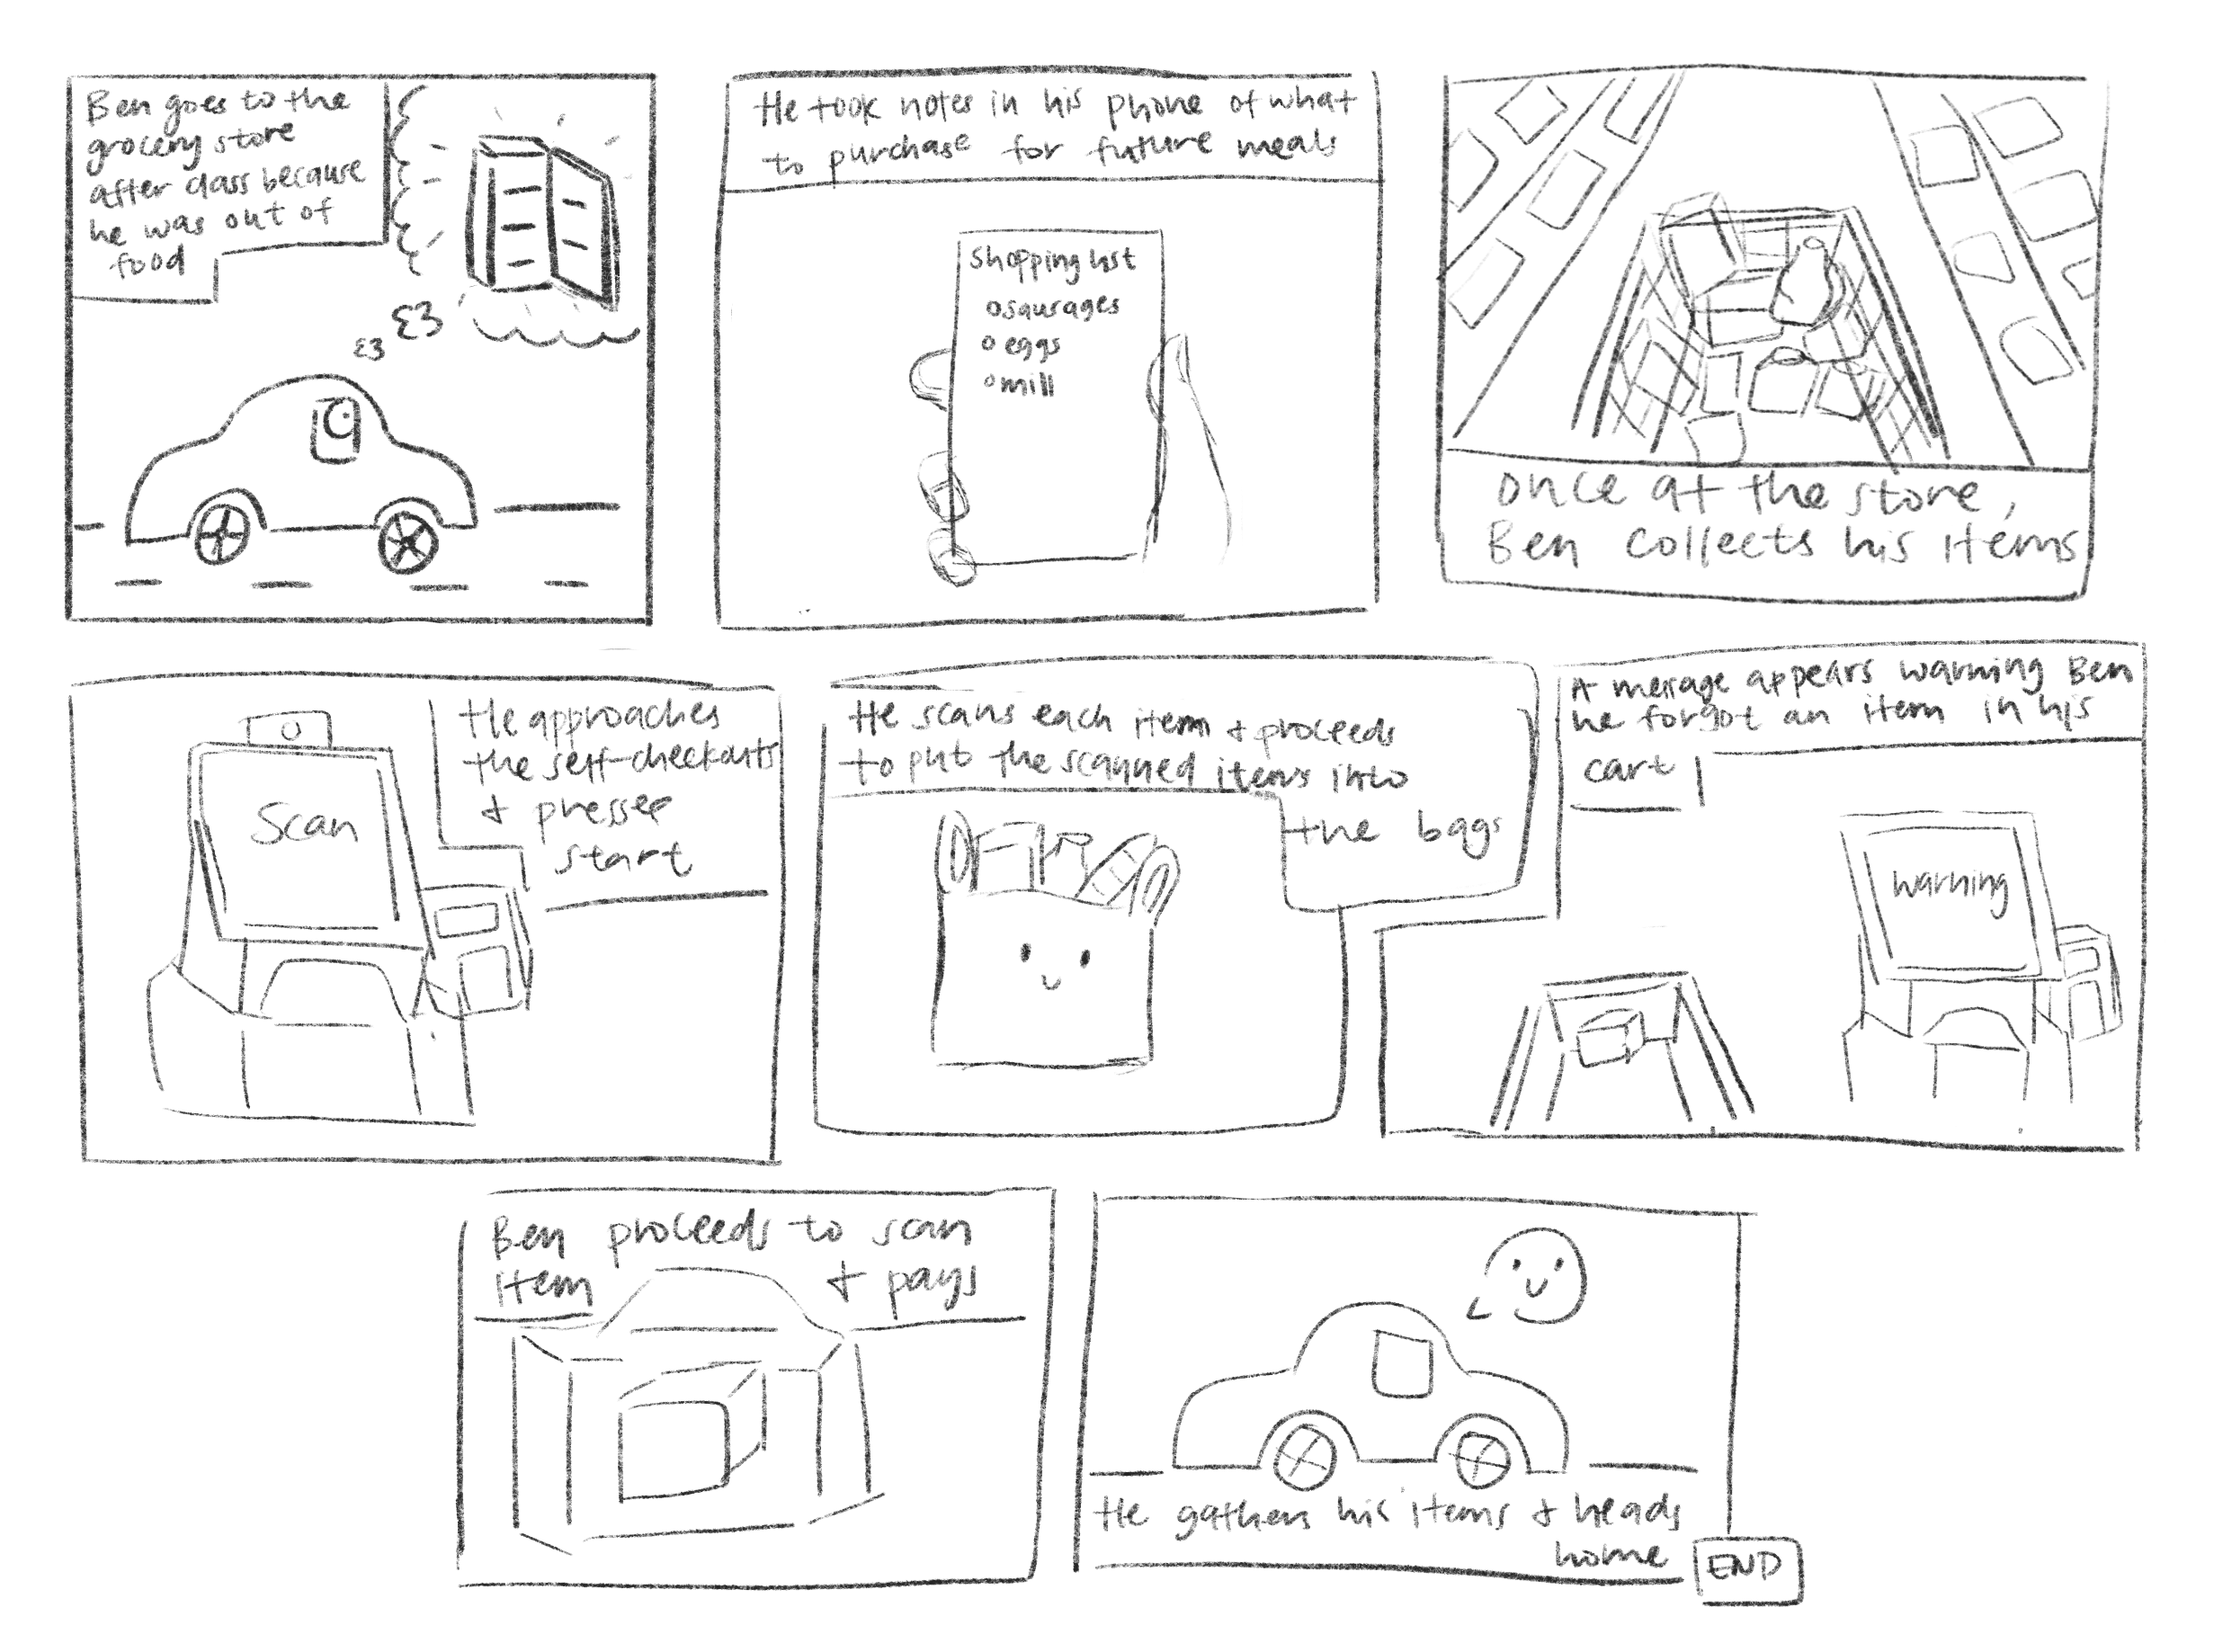 Ben goes to the
grocery store
after class because
he was out of
food
He took notes in his phone of what
to purchase for future meals
Shopping list
sausages
eggs
mill
Once at the store,
Ben collects his items
He approaches
the self-checkouts
+ presses
start
Scan
He scans each item + proceeds
to put the scanned items into
the bags
A message appears warning Ben
he forgot an item in his
cart
warning
Ben proceeds to scan
item + pays
He gathers his items + heads
home
END